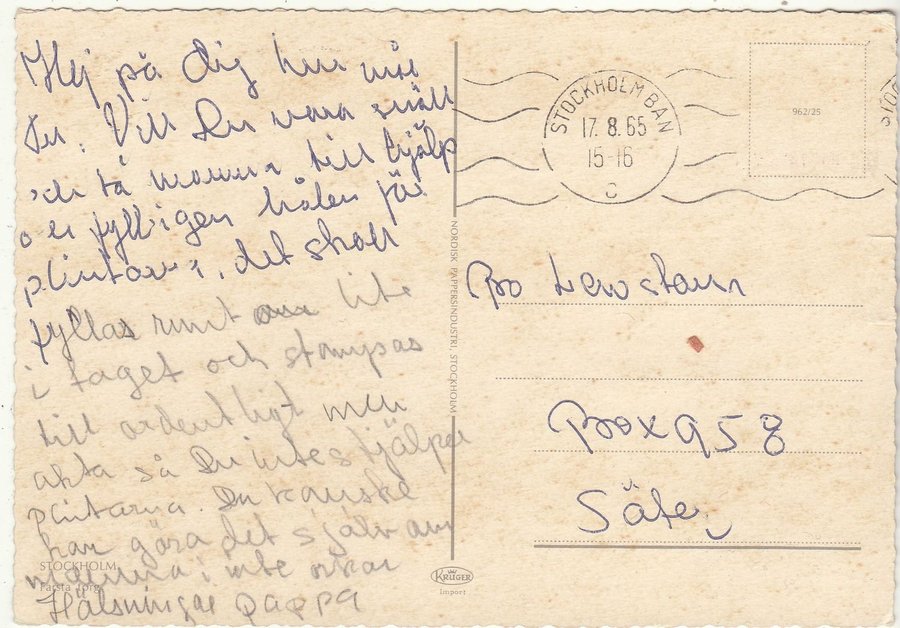 Hej på dig hur mår
Du. Vill Du vara snäll
och ta mamma till hjälp
o fyll igen hålen för
plintar, det skall
fyllas runt om lite
i taget och stampas
till ordentligt men
akta så Du inte stjälper
plintarna. Du kanske
kan göra det själv om
mamma inte orkar
Hälsningar pappa
STOCKHOLM
Farsta torg
NORDISK PAPPERSINDUSTRI, STOCKHOLM
KRÜGER
Import
STOCKHOLM BAN
17.8.65
15-16
C
962/25
Bo
Box 958
Säter